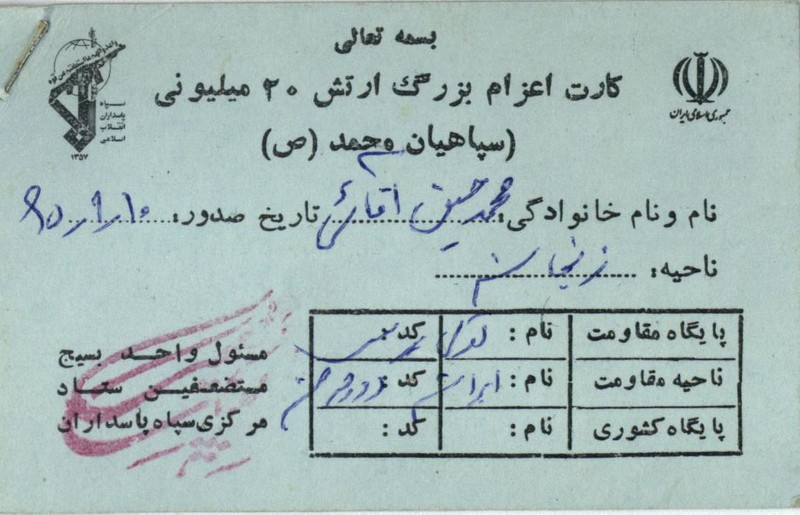 بسمه تعالی
کارت اعزام بزرگ ارتش ۲۰ میلیونی
(سپاهیان محمد (ص)
جمهوری اسلامی ایران
سپاه
پاسداران
انقلاب
اسلامی
۱۳۵۷
نام و نام خانوادگی: محمد حسین آقائی تاریخ صدور:
ناحیه: زنجان
پایگاه مقاومت نام: کد:
ناحیه مقاومت نام: کد:
پایگاه کشوری نام: کد:
مسئول واحد بسیج
مستضعفین ستاد
مرکزی سپاه پاسداران